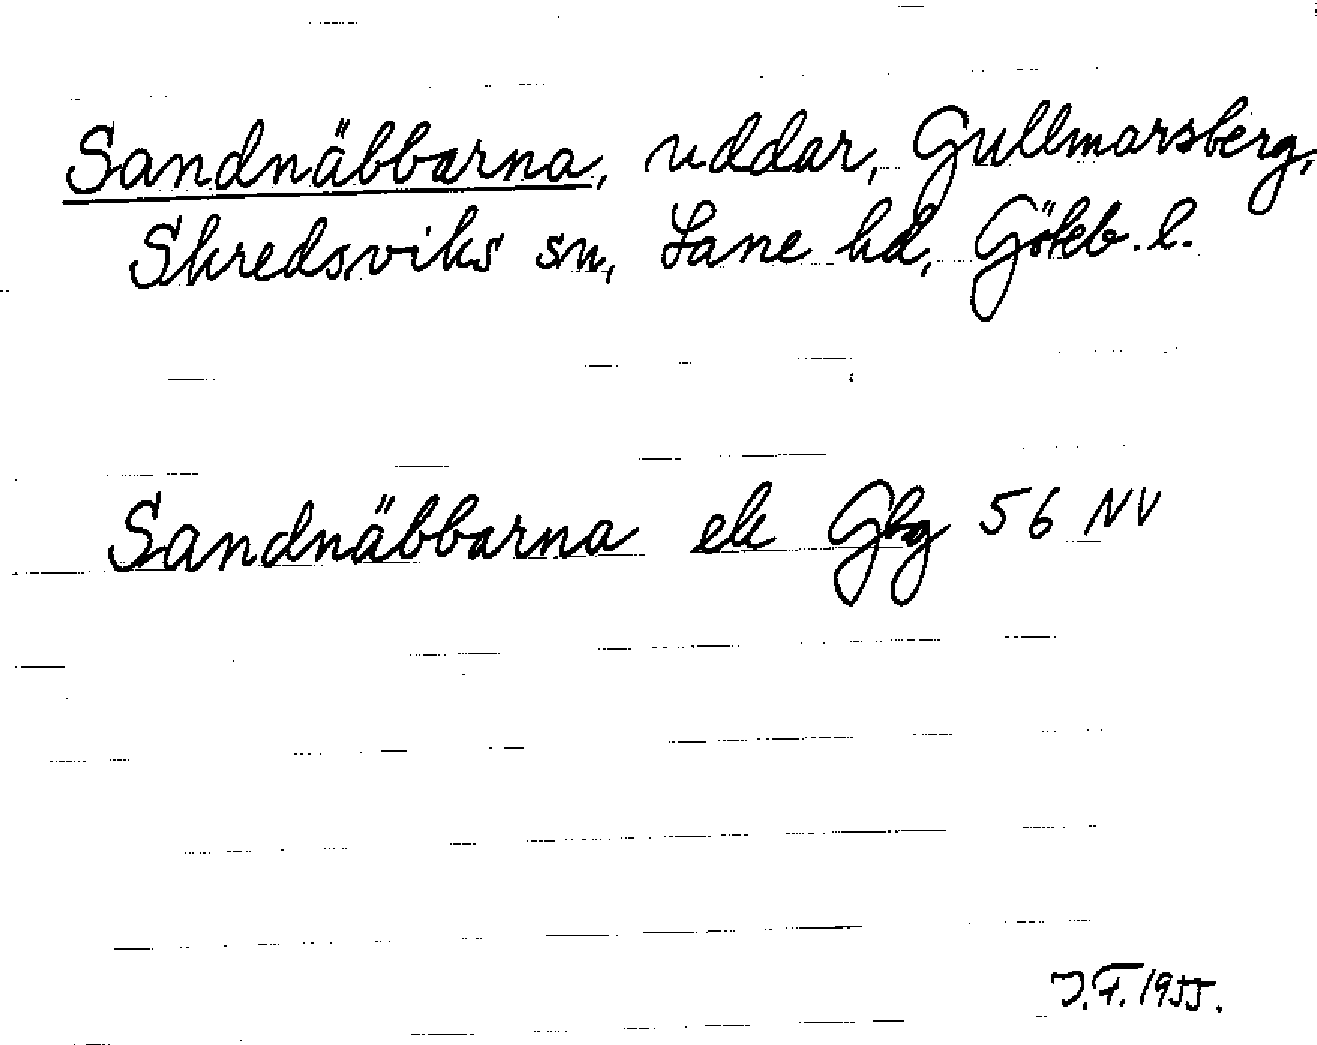 Sandnäbbarna, uddar, Gullmarsberg,
Skredsviks sn, Lane hd, Göteb. l.
Sandnäbbarna ek Gbg 56 NV
J.F. 1955.